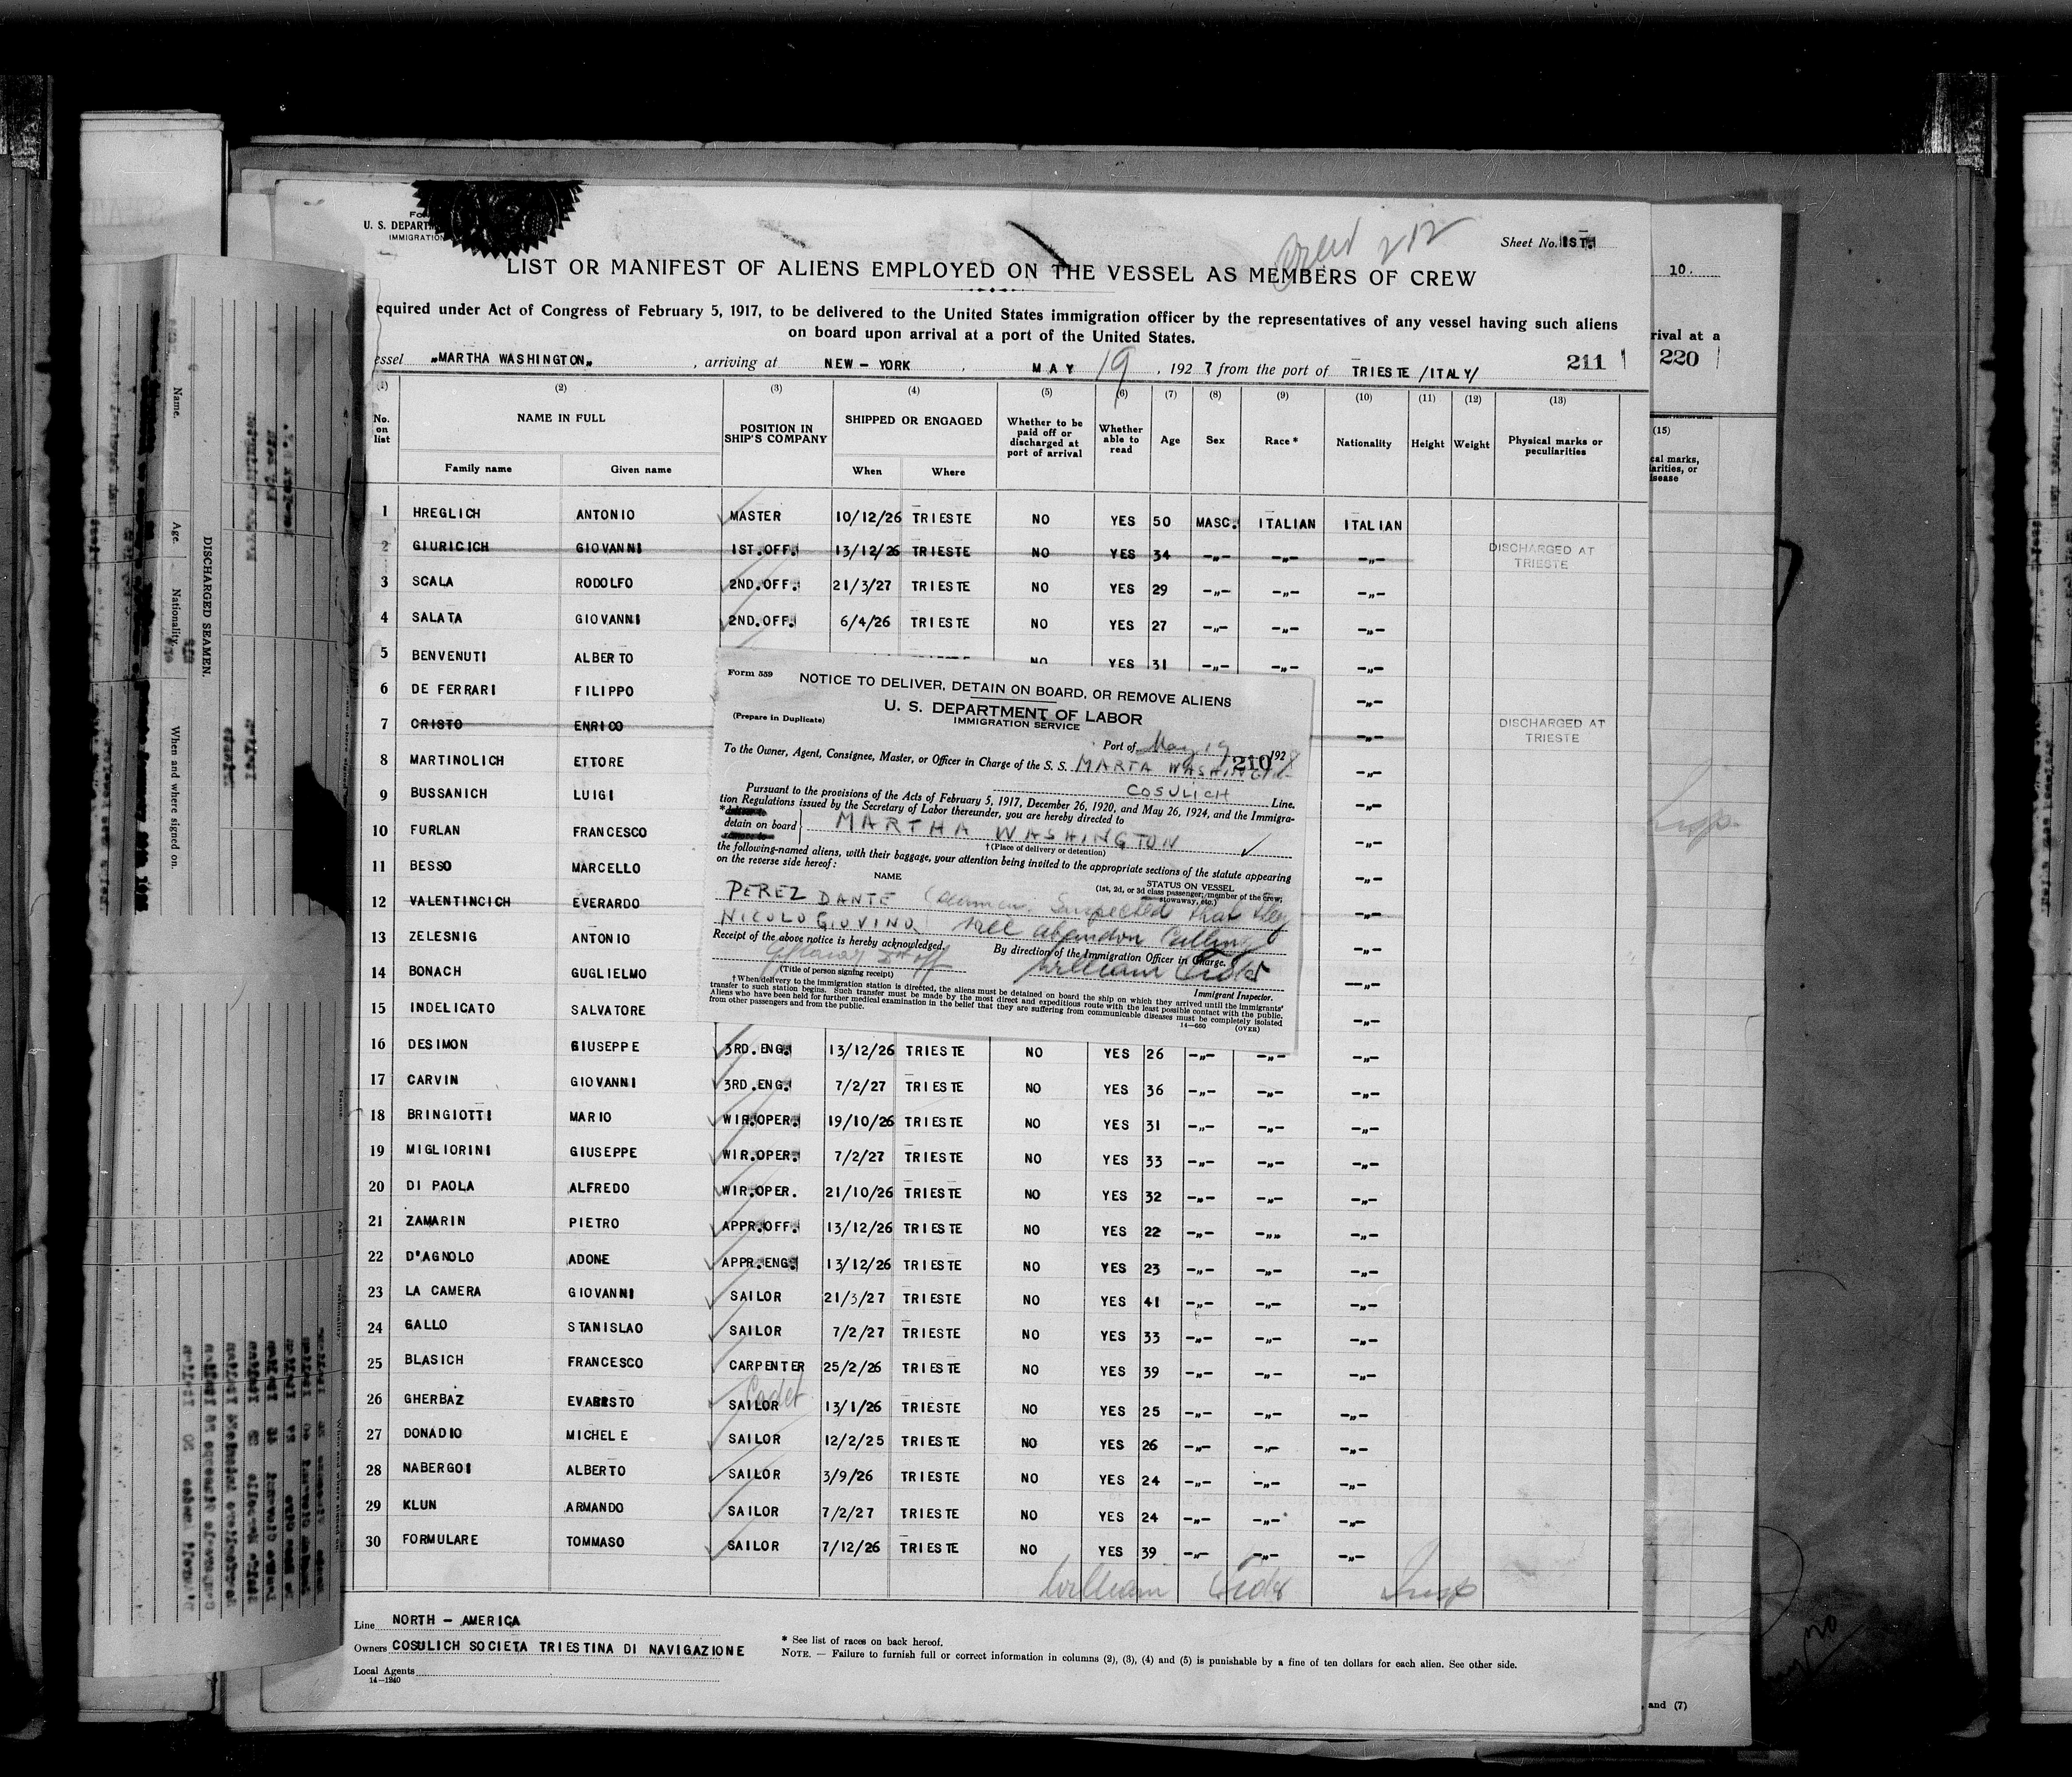 Crew 212
U. S. DEPART
IMMIGRATION
Sheet No. 1ST.
LIST OR MANIFEST OF ALIENS EMPLOYED ON THE VESSEL AS MEMBERS OF CREW
equired under Act of Congress of February 5, 1917, to be delivered to the United States immigration officer by the representatives of any vessel having such aliens
on board upon arrival at a port of the United States.
essel „MARTHA WASHINGTON„ , arriving at NEW – YORK , MAY 19 , 192 7 from the port of TRIESTE /ITALY/ 211
(1) (2) (3) (4) (5) (6) (7) (8) (9) (10) (11) (12) (13)
No. on list NAME IN FULL POSITION IN SHIP'S COMPANY SHIPPED OR ENGAGED Whether to be paid off or discharged at port of arrival Whether able to read Age Sex Race * Nationality Height Weight Physical marks or peculiarities
Family name Given name When Where
1 HREGLICH ANTONIO MASTER 10/12/26 TRIESTE NO YES 50 MASC. ITALIAN ITALIAN
2 GIURICICH GIOVANNI 1ST.OFF. 13/12/26 TRIESTE NO YES 34 –„– –„– –„– DISCHARGED AT TRIESTE
3 SCALA RODOLFO 2ND.OFF. 21/3/27 TRIESTE NO YES 29 –„– –„– –„–
4 SALATA GIOVANNI 2ND.OFF. 6/4/26 TRIESTE NO YES 27 –„– –„– –„–
5 BENVENUTI ALBERTO NO YES 31 –„– –„– –„–
6 DE FERRARI FILIPPO –„–
7 CRISTO ENRICO –„– DISCHARGED AT TRIESTE
8 MARTINOLICH ETTORE –„–
9 BUSSANICH LUIGI –„–
10 FURLAN FRANCESCO –„–
11 BESSO MARCELLO –„–
12 VALENTINCICH EVERARDO –„–
13 ZELESNIG ANTONIO –„–
14 BONACH GUGLIELMO –„–
15 INDELICATO SALVATORE –„–
Form 559
NOTICE TO DELIVER, DETAIN ON BOARD, OR REMOVE ALIENS
U. S. DEPARTMENT OF LABOR
IMMIGRATION SERVICE
(Prepare in Duplicate)
Port of May 19 210 192
To the Owner, Agent, Consignee, Master, or Officer in Charge of the S. S. MARTA WASHINGTON
COSULICH Line.
Pursuant to the provisions of the Acts of February 5, 1917, December 26, 1920, and May 26, 1924, and the Immigra-
tion Regulations issued by the Secretary of Labor thereunder, you are hereby directed to
detain on board } MARTHA WASHINGTON
†(Place of delivery or detention)
the following-named aliens, with their baggage, your attention being invited to the appropriate sections of the statute appearing
on the reverse side hereof:
NAME STATUS ON VESSEL
(1st, 2d, or 3d class passenger; member of the crew; stowaway, etc.)
PEREZ DANTE Seamen. Suspected that they
NICOLO GIOVINO will abandon Calling
Receipt of the above notice is hereby acknowledged. By direction of the Immigration Officer in Charge.
William
(Title of person signing receipt) Immigrant Inspector.
† When delivery to the immigration station is directed, the aliens must be detained on board the ship on which they arrived until the immigrants'
transfer to such station begins. Such transfer must be made by the most direct and expeditious route with the least possible contact with the public.
Aliens who have been held for further medical examination in the belief that they are suffering from communicable diseases must be completely isolated
from other passengers and from the public.
14—660 (OVER)
16 DESIMON GIUSEPPE 3RD.ENG. 13/12/26 TRIESTE NO YES 26 –„– –„– –„–
17 CARVIN GIOVANNI 3RD.ENG. 7/2/27 TRIESTE NO YES 36 –„– –„– –„–
18 BRINGIOTTI MARIO WIR.OPER. 19/10/26 TRIESTE NO YES 31 –„– –„– –„–
19 MIGLIORINI GIUSEPPE WIR.OPER. 7/2/27 TRIESTE NO YES 33 –„– –„– –„–
20 DI PAOLA ALFREDO WIR.OPER. 21/10/26 TRIESTE NO YES 32 –„– –„– –„–
21 ZAMARIN PIETRO APPR.OFF. 13/12/26 TRIESTE NO YES 22 –„– –„– –„–
22 D'AGNOLO ADONE APPR.ENG. 13/12/26 TRIESTE NO YES 23 –„– –„– –„–
23 LA CAMERA GIOVANNI SAILOR 21/3/27 TRIESTE NO YES 41 –„– –„– –„–
24 GALLO STANISLAO SAILOR 7/2/27 TRIESTE NO YES 33 –„– –„– –„–
25 BLASICH FRANCESCO CARPENTER 25/2/26 TRIESTE NO YES 39 –„– –„– –„–
Cadet
26 GHERBAZ EVARISTO SAILOR 13/1/26 TRIESTE NO YES 25 –„– –„– –„–
27 DONADIO MICHELE SAILOR 12/2/25 TRIESTE NO YES 26 –„– –„– –„–
28 NABERGOI ALBERTO SAILOR 3/9/26 TRIESTE NO YES 24 –„– –„– –„–
29 KLUN ARMANDO SAILOR 7/2/27 TRIESTE NO YES 24 –„– –„– –„–
30 FORMULARE TOMMASO SAILOR 7/12/26 TRIESTE NO YES 39 –„– –„– –„–
William Insp
Line NORTH – AMERICA
Owners COSULICH SOCIETA TRIESTINA DI NAVIGAZIONE
Local Agents
14—1240
* See list of races on back hereof.
NOTE. — Failure to furnish full or correct information in columns (2), (3), (4) and (5) is punishable by a fine of ten dollars for each alien. See other side.
10.
rival at a
220
(15)
cal marks,
larities, or
sease
Insp.
and (7)
DISCHARGED SEAMEN.
Name. Age. Nationality. When and where signed on.